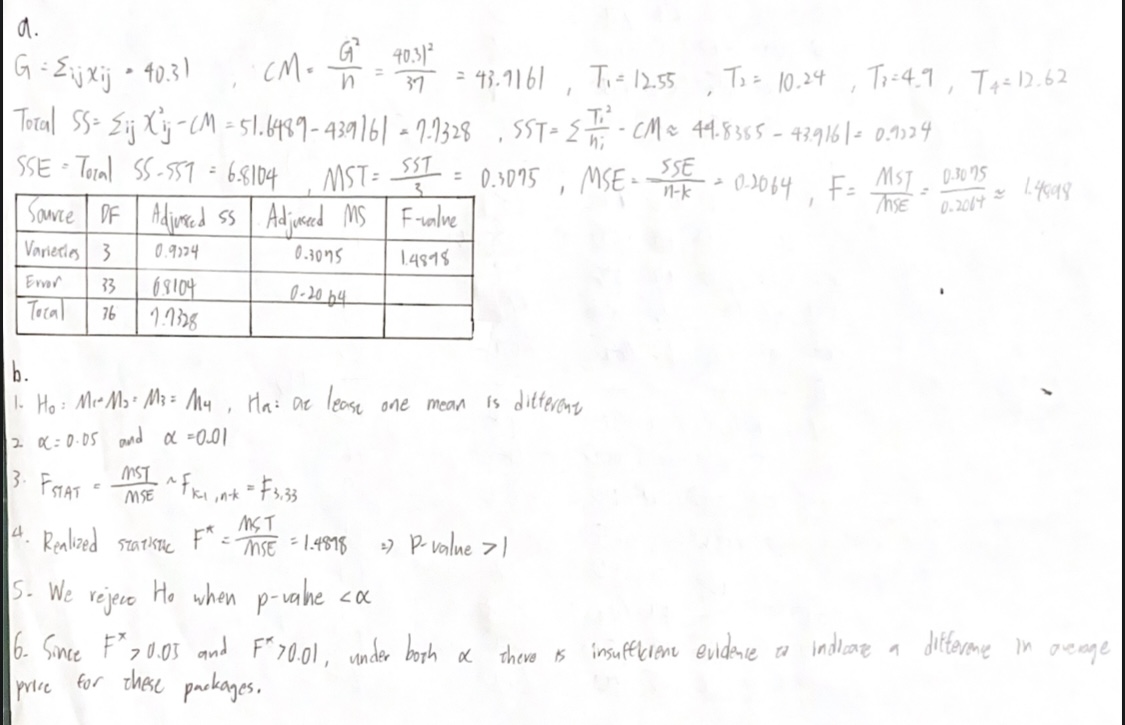 a.
G = Σij xij = 40.31 , CM = G²/n = 40.31²/37 = 43.9161 , T₁ = 12.55 , T₂ = 10.24 , T₃ = 4.9 , T₄ = 12.62
Total SS = Σij X²ij - CM = 51.6489 - 43.9161 = 7.7328 , SST = Σ Ti²/ni - CM ≈ 44.8385 - 43.9161 = 0.9224
SSE = Total SS - SST = 6.8104 , MST = SST/3 = 0.3075 , MSE = SSE/n-k = 0.2064 , F = MST/MSE = 0.3075/0.2064 ≈ 1.4898
Source DF Adjusted SS Adjusted MS F-value
Varieties 3 0.9224 0.3075 1.4898
Error 33 6.8104 0.2064
Total 36 7.7328
b.
1. H₀ : M₁ = M₂ = M₃ = M₄ , Ha : at least one mean is different
2. α = 0.05 and α = 0.01
3. FSTAT = MST/MSE ~ Fk-1, n-k = F3,33
4. Realized statistic F* = MST/MSE = 1.4898 ⇒ P-value > 1
5. We reject H₀ when p-value < α
6. Since F* > 0.05 and F* > 0.01, under both α there is insufficient evidence to indicate a difference in average
price for these packages.